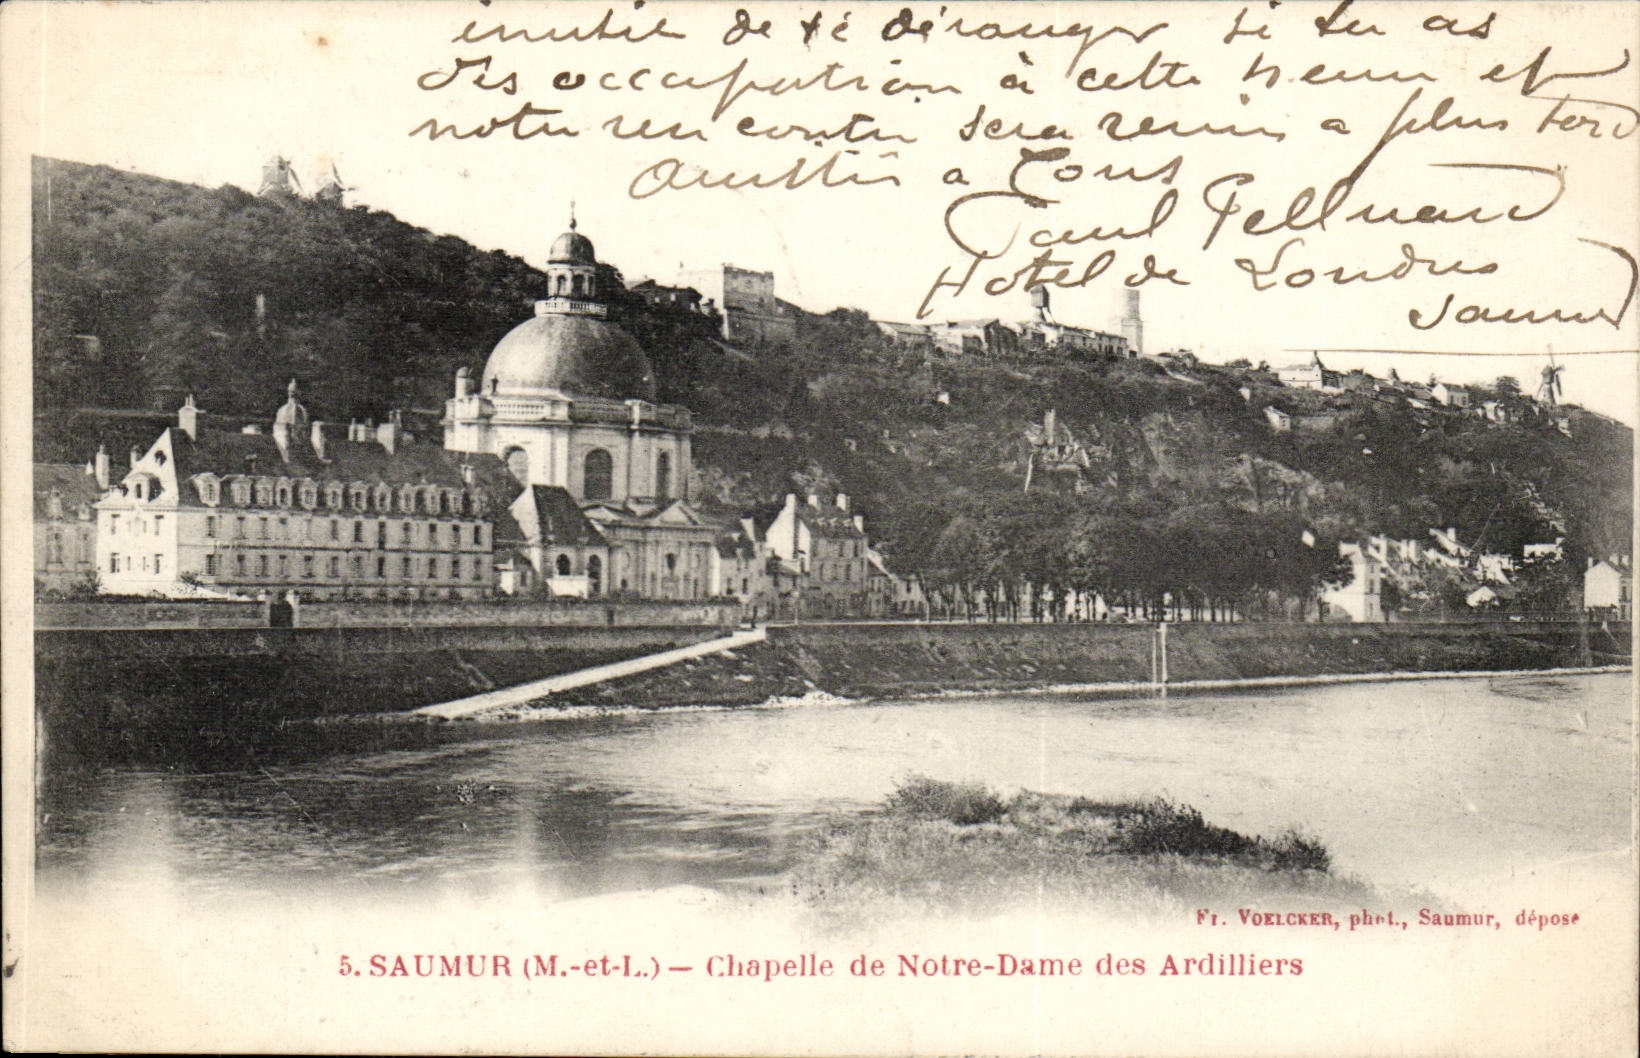 inutile de té déranger si tu as
des occupation à cette heure et
notre rencontre sera remis a plus tard
Amitiés a Tous
Paul
Hotel de Londres
Saumur
Fr. VOELCKER, phot., Saumur, déposé
5. SAUMUR (M.-et-L.) — Chapelle de Notre-Dame des Ardilliers